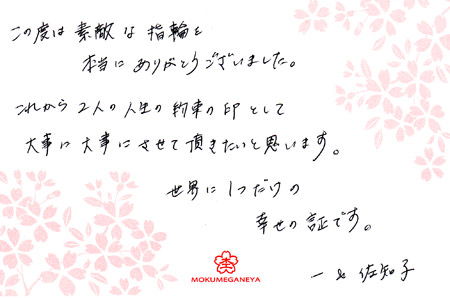 この度は 素敵な 指輪を
本当に ありがとうございました。
これから 2人の 人生の 約束の 印として
大事に 大事に させて 頂きたいと思います。
世界に 1つだけの
幸せの 証です。
一 & 佐知子
MOKUMEGANEYA